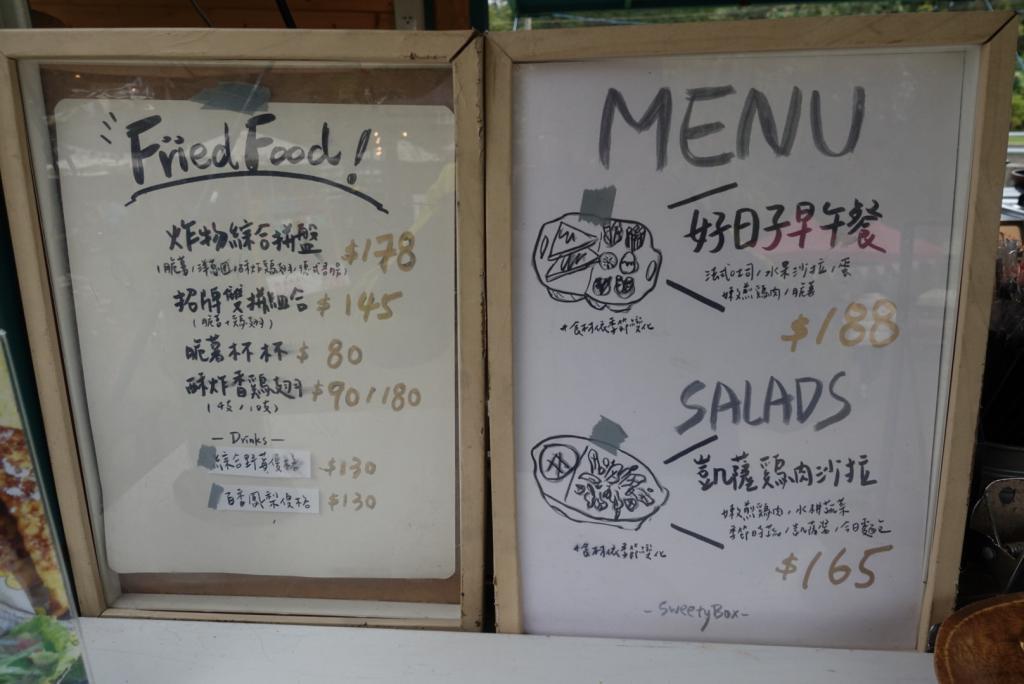 Fried Food!
炸物綜合拼盤 $178
(脆薯/洋蔥圈/酥炸雞翅/德式香腸)
招牌雙拼組合 $145
(脆薯+雞翅)
脆薯杯杯 $80
酥炸香雞翅 $90/180
(4支/10支)
— Drinks —
綜合野莓優格 $130
百香鳳梨優格 $130
MENU
好日子早午餐
法式吐司/水果沙拉/蛋
嫩煎雞肉/脆薯
$188
*食材依季節變化
SALADS
凱薩雞肉沙拉
嫩煎雞肉/水耕蔬菜
季節時蔬/凱薩醬/今日麵包
$165
*食材依季節變化
- SweetyBox -